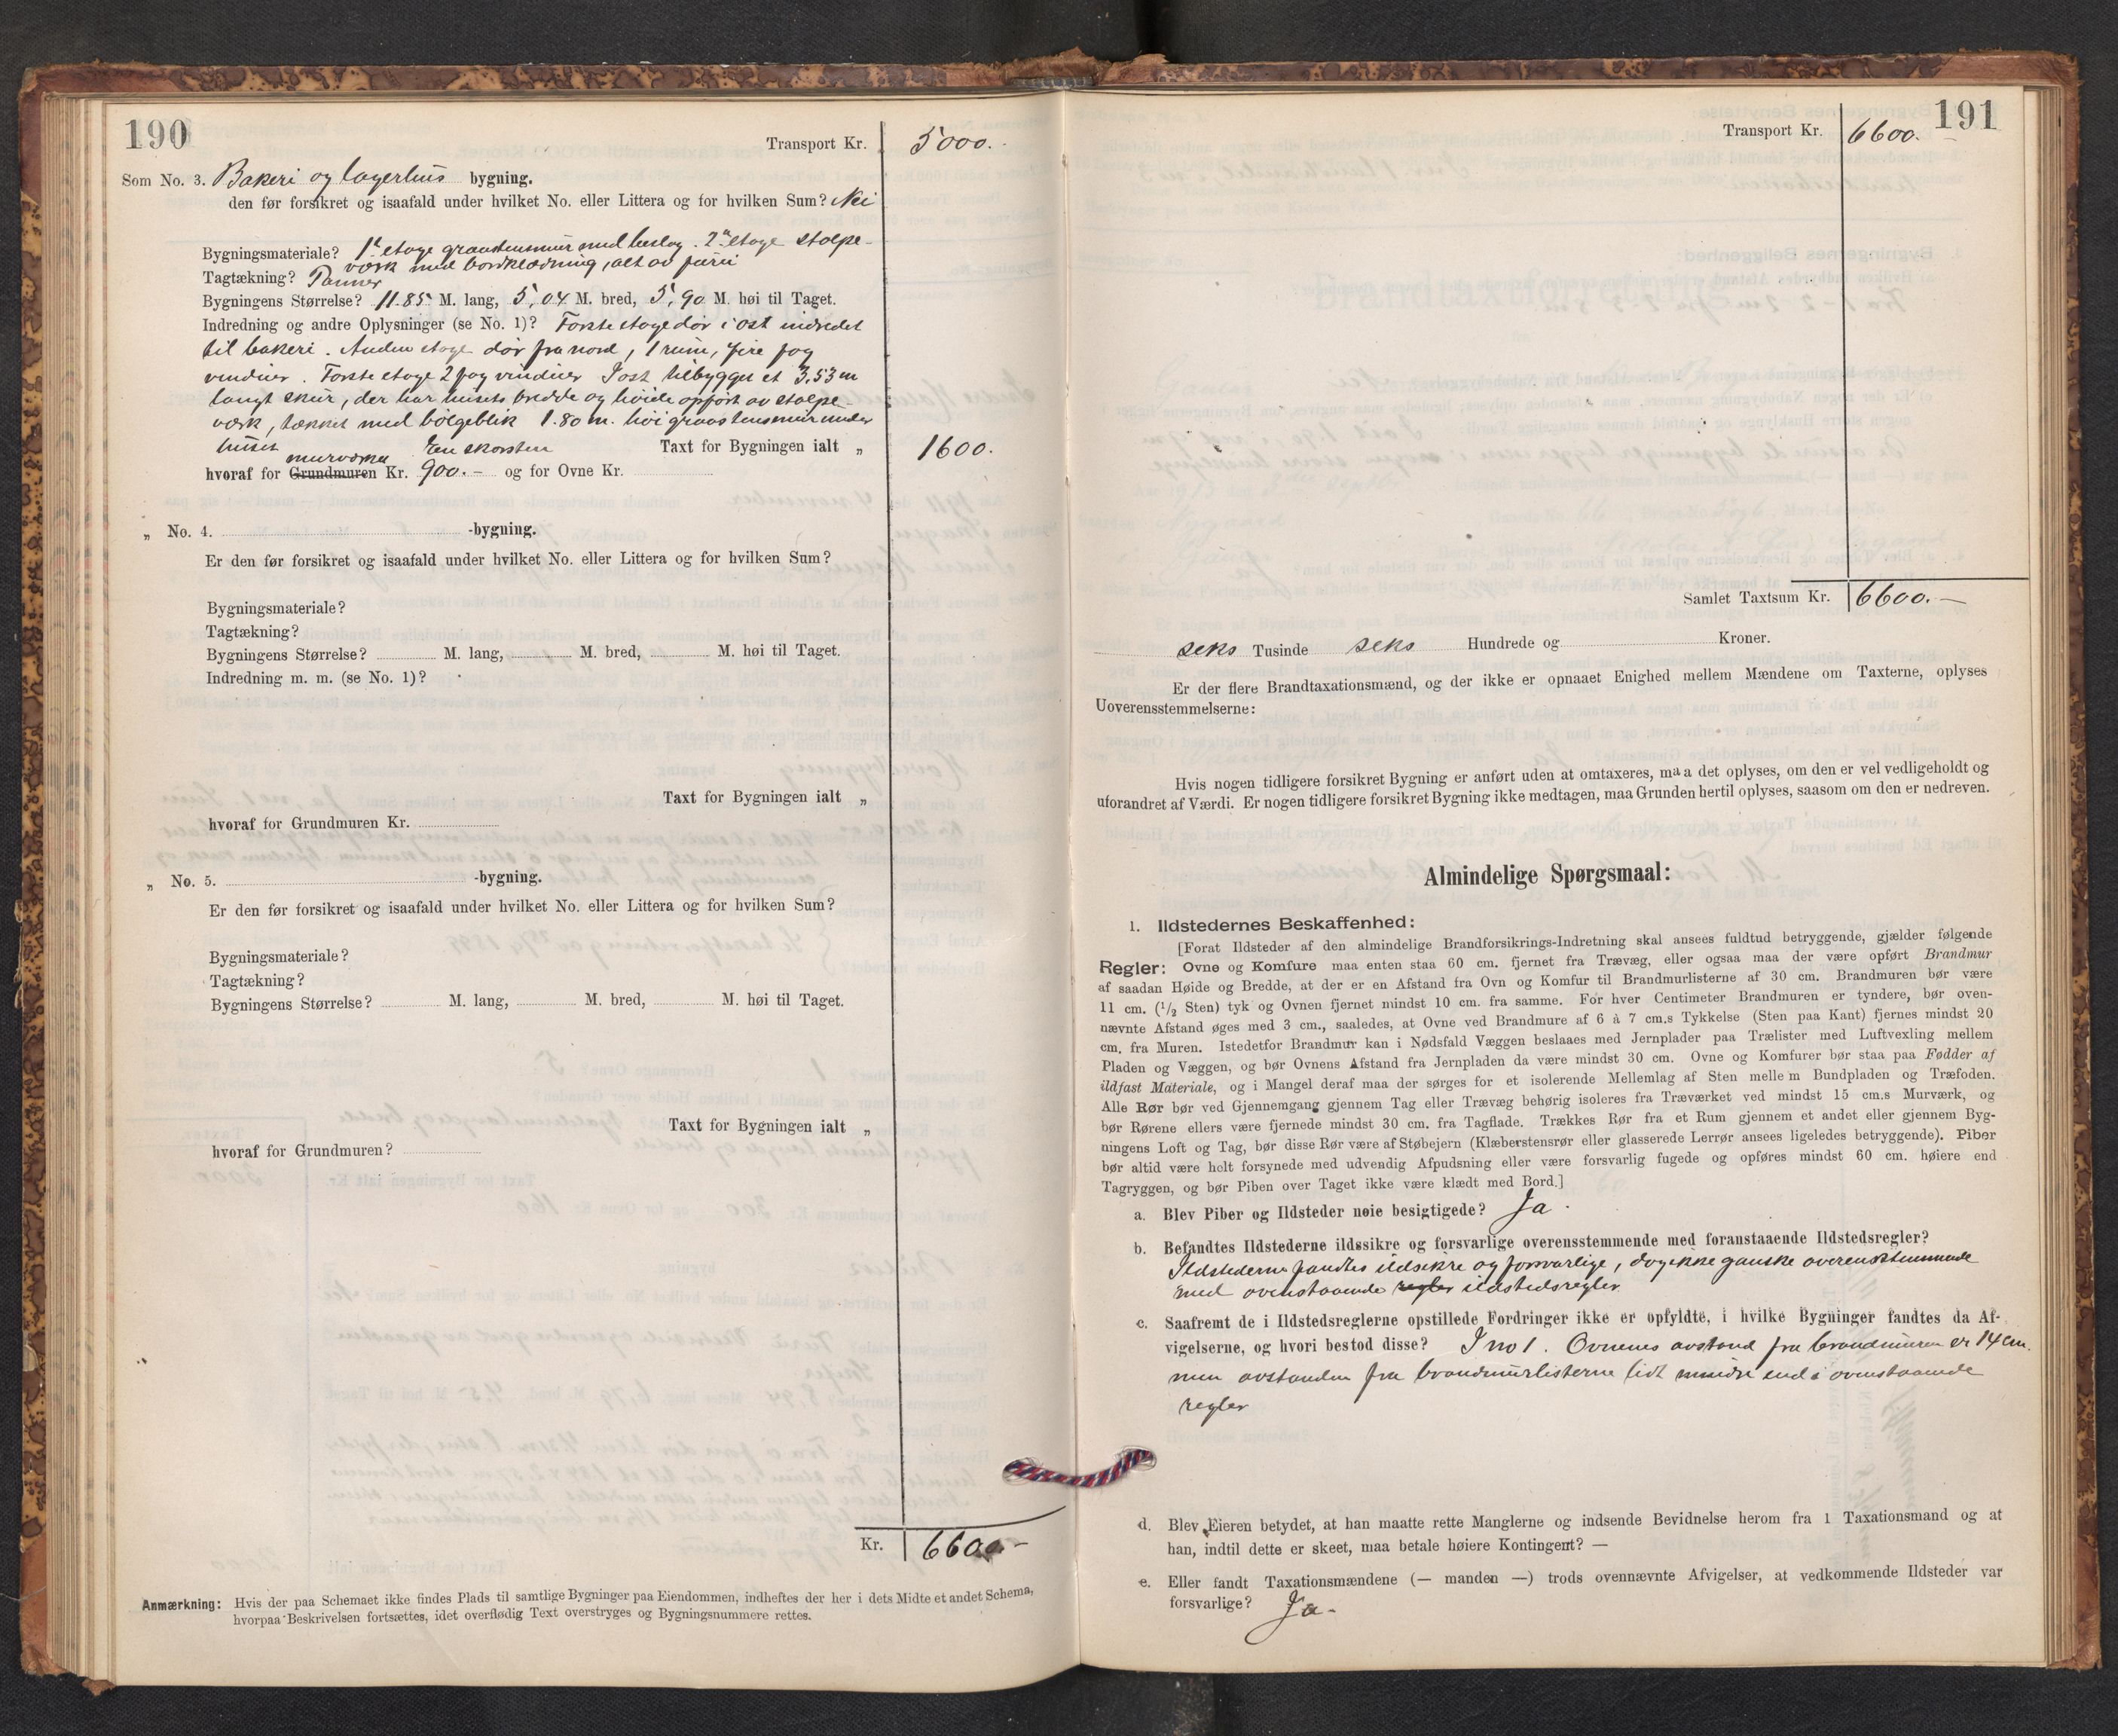 190
Transport Kr. 5000.-
Som No. 3. Bakeri og lagerhus bygning.
den før forsikret og isaafald under hvilket No. eller Littera og for hvilken Sum? Nei
Bygningsmateriale? 1ste etage graastensmur med beslag. 2den etage stolpe-
værk med bordklædning, alt av furu
Tagtækning? Panner
Bygningens Størrelse? 11.85 M. lang, 5,04 M. bred, 5,90 M. høi til Taget.
Indredning og andre Oplysninger (se No. 1)? Første etage dør i øst indredet
til bakeri. Anden etage dør fra nord, 1 rum, fire fag
vinduer. Første etage 2 fag vinduer I øst tilbygget et 3,53 m
langt skur, der har husets bredde og høide opført av stolpe-
værk, tækket med bølgeblik 1.80 m. høi graastensmur under
huset En skorsten Taxt for Bygningen ialt „ 1600.
murværket
hvoraf for Grundmuren Kr. 900.- og for Ovne Kr.
„ No. 4. -bygning.
Er den før forsikret og isaafald under hvilket No. eller Littera og for hvilken Sum?
Bygningsmateriale?
Tagtækning?
Bygningens Størrelse? M. lang, M. bred, M. høi til Taget.
Indredning m. m. (se No. 1)?
Taxt for Bygningen ialt „
hvoraf for Grundmuren Kr.
„ No. 5. -bygning.
Er den før forsikret og isaafald under hvilket No. eller Littera og for hvilken Sum?
Bygningsmateriale?
Tagtækning?
Bygningens Størrelse? M. lang, M. bred, M. høi til Taget.
Taxt for Bygningen ialt „
hvoraf for Grundmuren?
Kr. 6600.-
Anmærkning: Hvis der paa Schemaet ikke findes Plads til samtlige Bygninger paa Eiendommen, indheftes der her i dets Midte et andet Schema,
hvorpaa Beskrivelsen fortsættes, idet overflødig Text overstryges og Bygningsnummere rettes.
191
Transport Kr. 6600.-
Samlet Taxtsum Kr. 6600.-
seks Tusinde seks Hundrede og Kroner.
Er der flere Brandtaxationsmænd, og der ikke er opnaaet Enighed mellem Mændene om Taxterne, oplyses
Uoverensstemmelserne:
Hvis nogen tidligere forsikret Bygning er anført uden at omtaxeres, maa det oplyses, om den er vel vedligeholdt og
uforandret af Værdi. Er nogen tidligere forsikret Bygning ikke medtagen, maa Grunden hertil oplyses, saasom om den er nedreven.
Almindelige Spørgsmaal:
1. Ildstedernes Beskaffenhed:
[Forat Ildsteder af den almindelige Brandforsikrings-Indretning skal ansees fuldtud betryggende, gjælder følgende
Regler: Ovne og Komfure maa enten staa 60 cm. fjernet fra Trævæg, eller ogsaa maa der være opført Brandmur
af saadan Høide og Bredde, at der er en Afstand fra Ovn og Komfur til Brandmurlisterne af 30 cm. Brandmuren bør være
11 cm. (1/2 Sten) tyk og Ovnen fjernet mindst 10 cm. fra samme. For hver Centimeter Brandmuren er tyndere, bør oven-
nævnte Afstand øges med 3 cm., saaledes, at Ovne ved Brandmure af 6 à 7 cm.s Tykkelse (Sten paa Kant) fjernes mindst 20
cm. fra Muren. Istedetfor Brandmur kan i Nødsfald Væggen beslaaes med Jernplader paa Trælister med Luftvexling mellem
Pladen og Væggen, og bør Ovnens Afstand fra Jernpladen da være mindst 30 cm. Ovne og Komfurer bør staa paa Fødder af
ildfast Materiale, og i Mangel deraf maa der sørges for et isolerende Mellemlag af Sten mellem Bundpladen og Træfoden.
Alle Rør bør ved Gjennemgang gjennem Tag eller Trævæg behørig isoleres fra Træværket ved mindst 15 cm.s Murværk, og
bør Rørene ellers være fjernede mindst 30 cm. fra Tagflade. Trækkes Rør fra et Rum gjennem et andet eller gjennem Byg-
ningens Loft og Tag, bør disse Rør være af Støbejern (Klæberstensrør eller glasserede Lerrør ansees ligeledes betryggende). Piber
bør altid være holt forsynede med udvendig Afpudsning eller være forsvarlig fugede og opføres mindst 60 cm. høiere end
Tagryggen, og bør Piben over Taget ikke være klædt med Bord.]
a. Blev Piber og Ildsteder nøie besigtigede? Ja.
b. Befandtes Ildstederne ildssikre og forsvarlige overensstemmende med foranstaaende Ildstedsregler?
Ildstederne fandtes ildsikre og forsvarlige, dog ikke ganske overensstemmende
med ovenstaaende regler ildstedsregler.
c. Saafremt de i Ildstedsreglerne opstillede Fordringer ikke er opfyldte, i hvilke Bygninger fandtes da Af-
vigelserne, og hvori bestod disse? I no 1. Ovnenes avstand fra brandmuren er 14 cm.
men avstanden fra brandmurlisterne lidt mindre end i ovenstaaende
regler
d. Blev Eieren betydet, at han maatte rette Manglerne og indsende Bevidnelse herom fra 1 Taxationsmand og at
han, indtil dette er skeet, maa betale høiere Kontingent? —
e. Eller fandt Taxationsmændene (— manden —) trods ovennævnte Afvigelser, at vedkommende Ildsteder var
forsvarlige? Ja-